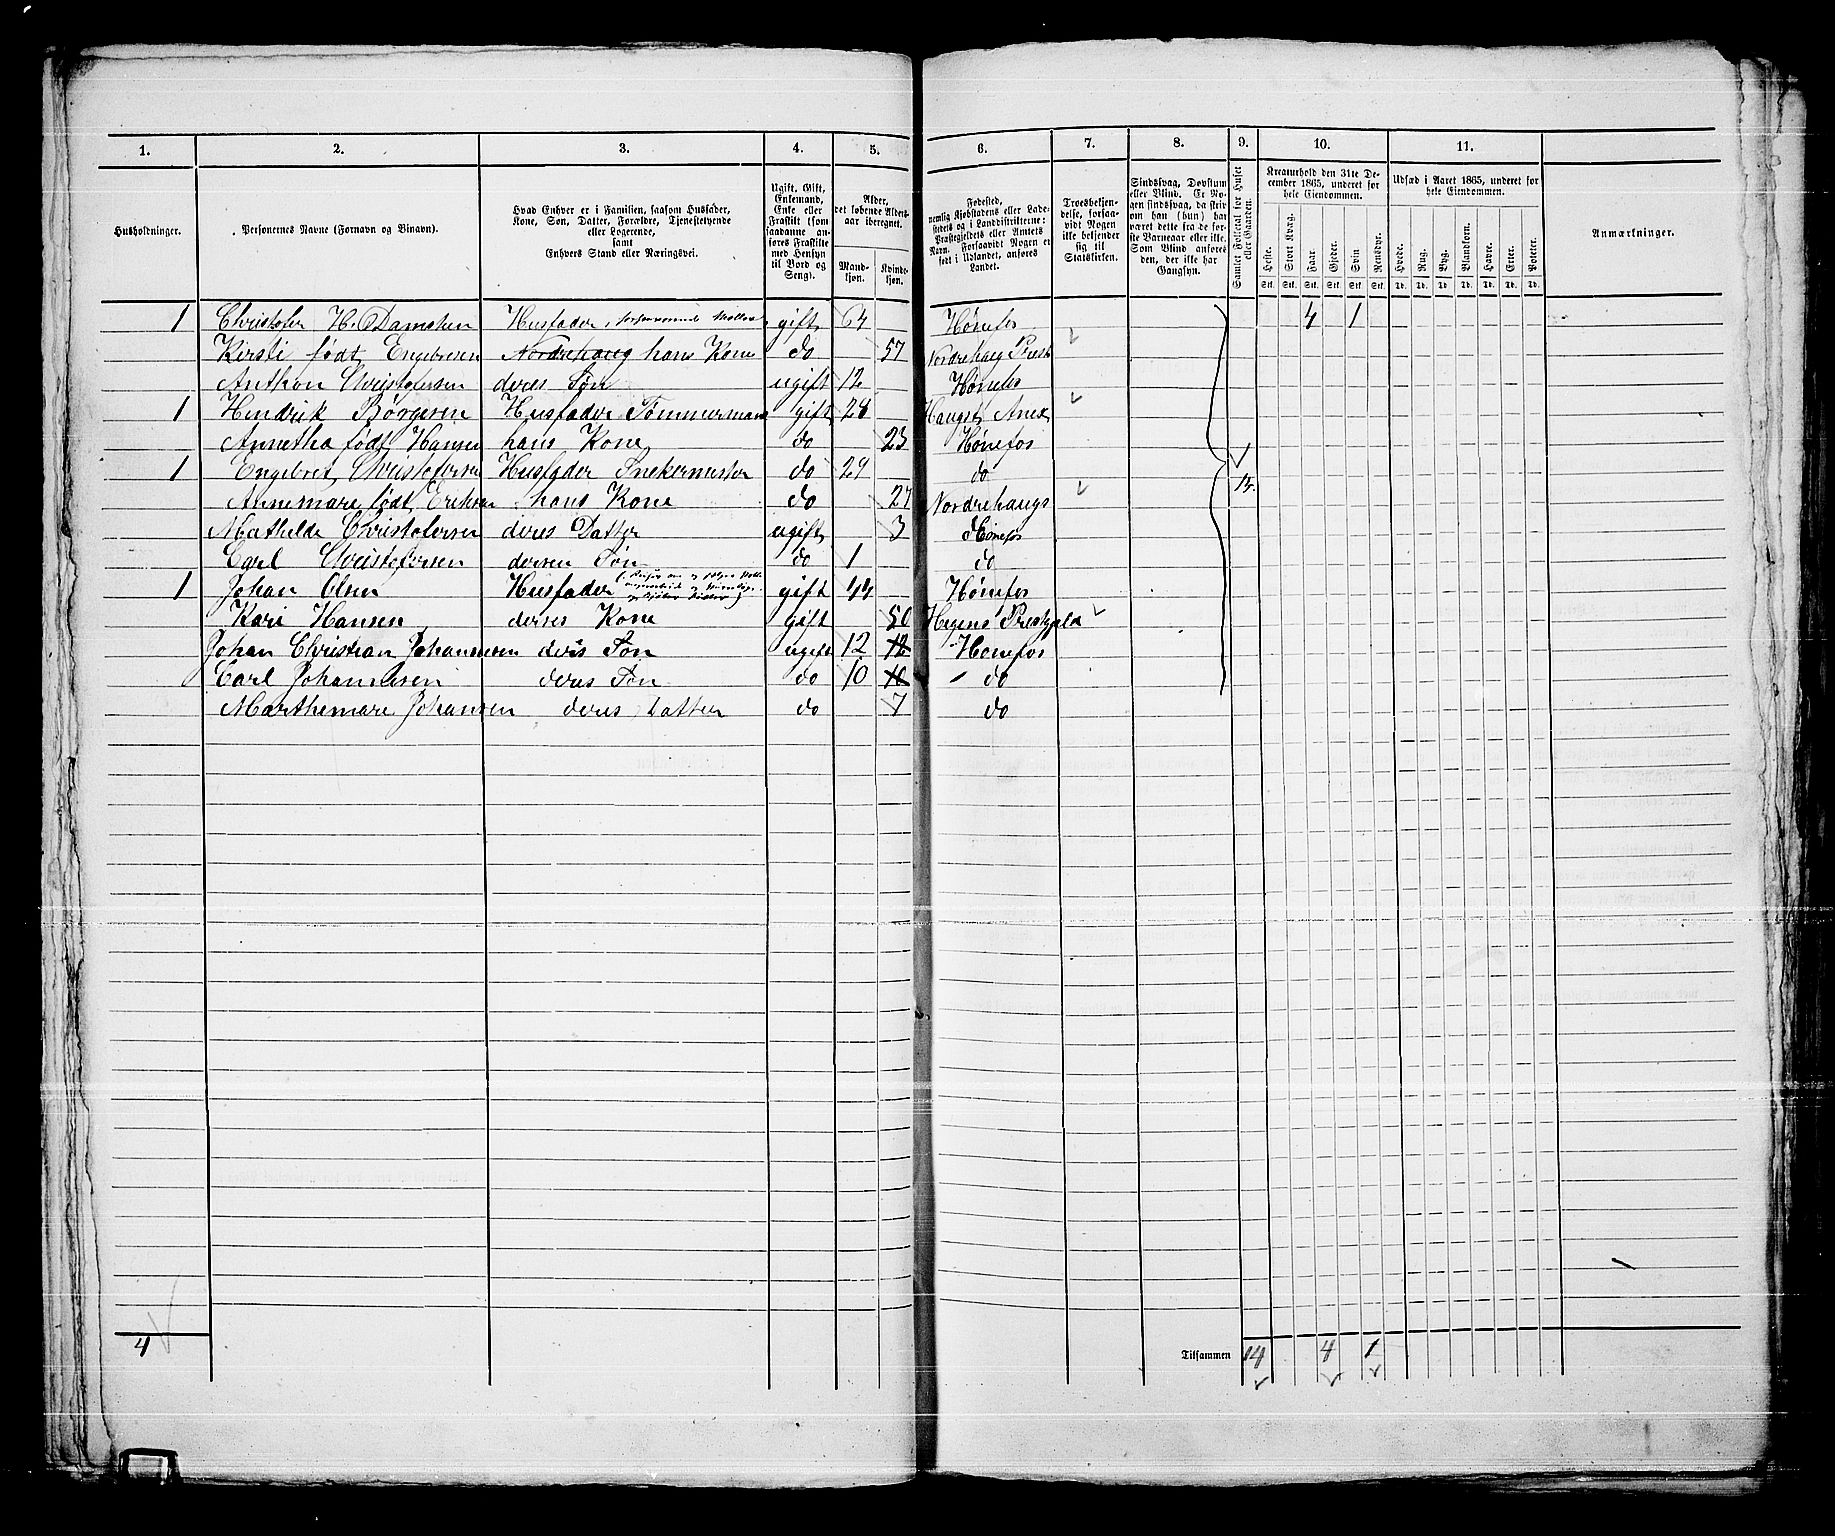 1. 2. 3. 4. 5. 6. 7. 8. 9. 10. 11.
Husholdninger.
Personernes Navne (Fornavn og Binavn).
Hvad Enhver er i Familien, saasom Husfader,
Kone, Søn, Datter, Forældre, Tjenestetyende
eller Logerende,
samt
Enhvers Stand eller Næringsvei.
Ugift, Gift,
Enkemand,
Enke eller
Fraskilt (som
saadanne an-
føres Fraskilte
med Hensyn
til Bord og
Seng).
Alder,
det løbende Alders-
aar iberegnet.
Mand-
kjøn.
Kvinde-
kjøn.
Fødested,
nemlig Kjøbstadens eller Lade-
stedets og i Landdistrikterne:
Præstegjeldets eller Amtets
Navn. Forsaavidt Nogen er
født i Udlandet, anføres
Landet.
Troesbekjen-
delse, forsaa-
vidt Nogen
ikke bekjender
sig til
Statskirken.
Sindssvag, Døvstum
eller Blind. Er No-
gen sindssvag, da skriv
om han (hun) har
været dette fra de før-
ste Barneaar eller ikke.
Som Blind anføres
den, der ikke har
Gangsyn.
Samlet Folketal for Huset
eller Gaarden.
Kreaturhold den 31te De-
cember 1865, underet for
hele Eiendommen.
Heste. Stort Kvæg. Faar. Gjeder. Svin. Rensdyr.
Stk. Stk. Stk. Stk. Stk. Stk.
Udsæd i Aaret 1865, underet for
hele Eiendommen.
Hvede. Rug. Byg. Blandkorn. Havre. Erter. Poteter.
Td. Td. Td. Td. Td. Td. Td.
Anmærkninger.
1 Christofer H. Damsken Husfader, gift 64 Hønefos 4 1
Kirsti født Engebresen Nordrehaug hans Kone do 57 Nordrehaug Prest
Anthon Christofersen deres Søn ugift 12 Hønefos
1 Hendrik Børgesen Husfader Tømmermand gift 28 Haugs Anex
Annetha født Hansen hans Kone do 23 Hønefos
1 Engebret Christofersen Husfader Snekermester do 29 do
Annemare født Eriksen hans Kone do 27 Nordrehaugs 14.
Mathelde Christofersen deres Datter ugift 3 Hønefos
Carl Christofersen derses Søn do 1 do
1 Johan Olsen Husfader gift 44 Hønefos
Kari Hansen derses Kone gift 50 Prestgeld
Johan Christian Johannesen deris Søn ugift 12 12 Hønefos
Carl Johannesen deres Søn do 10 10 do
Marthemare Johansen deres Datter do 7 do
4
Tilsammen 14 4 1